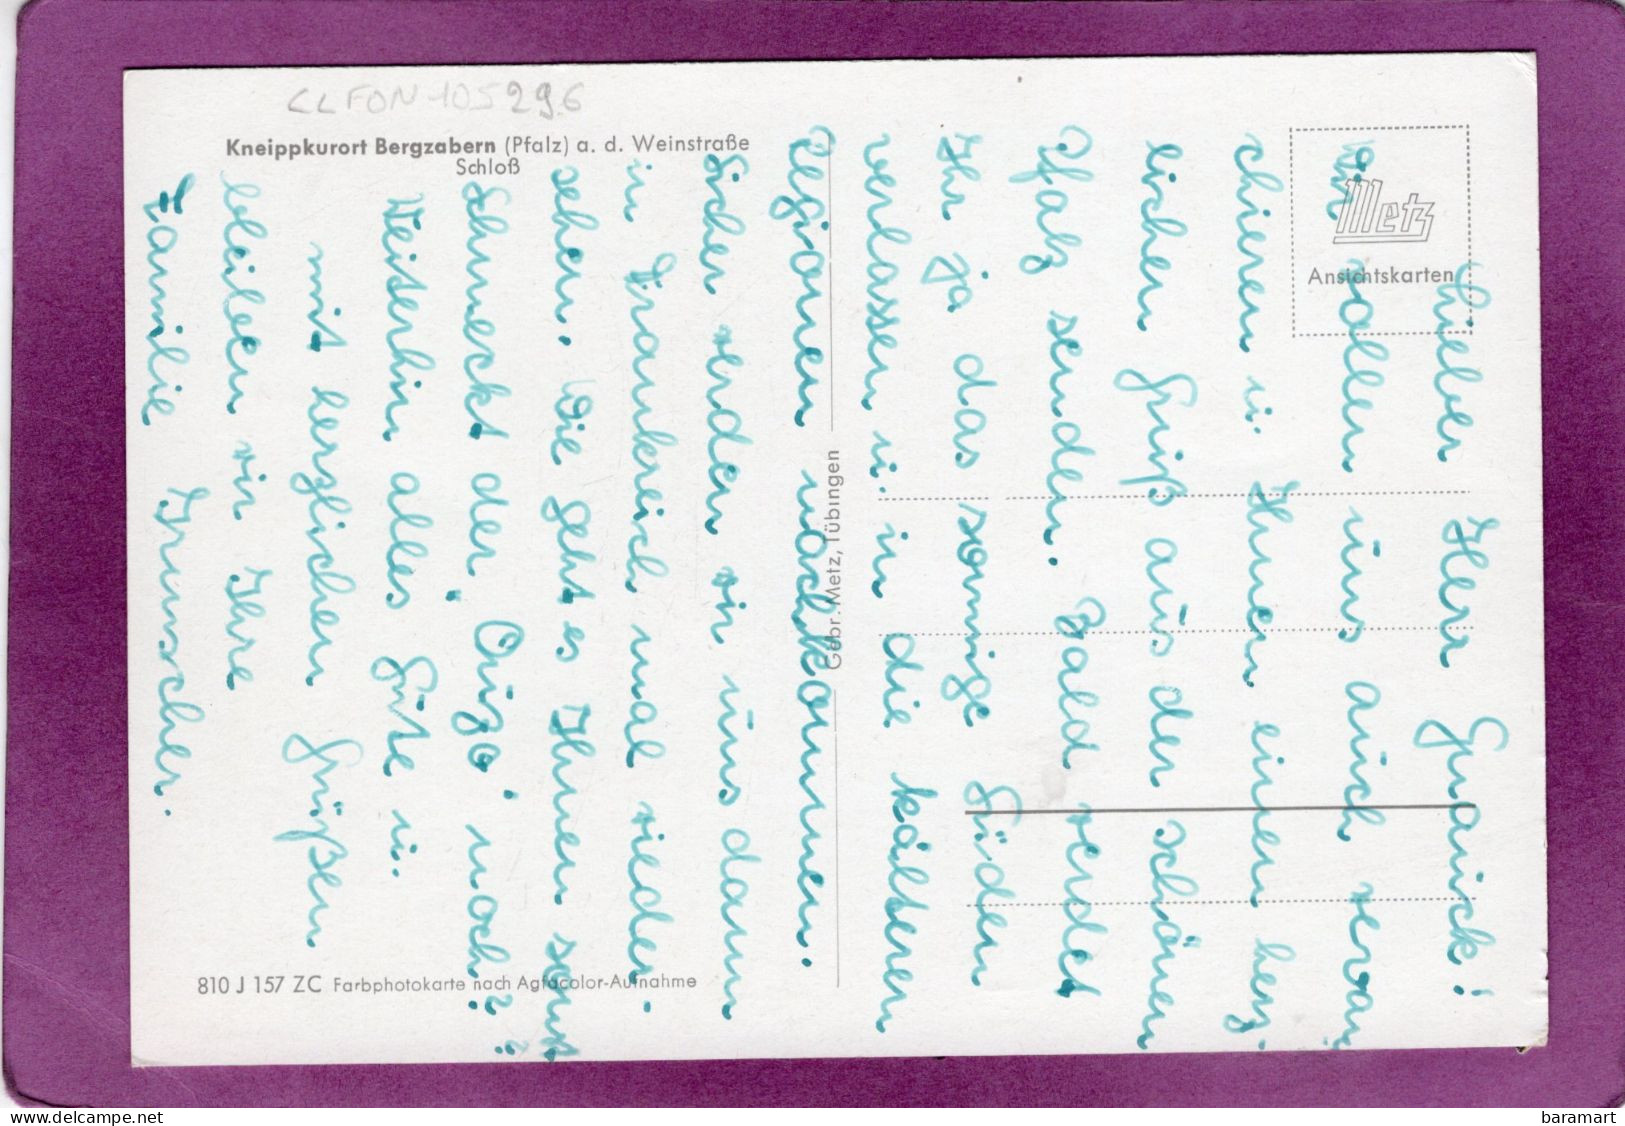 CLFON 105296
Kneippkurort Bergzabern (Pfalz) a. d. Weinstraße
Schloß
Metz
Ansichtskarten
Gebr. Metz, Tübingen
810 J 157 ZC Farbphotokarte nach Agfacolor-Aufnahme
Lieber Herr
Wir wollen uns auch revan-
chieren u. Ihnen einen herz-
lichen Gruß aus der schönen
Pfalz senden. Bald werdet
Ihr ja das sonnige Süden
verlassen u. in die kälteren
Regionen nachkommen.
Sicher werden wir uns dann
in Frankreich mal wieder-
sehen. Wie geht es Ihnen sonst
Schmeckt der "Ouzo" noch??
Weiterhin alles Gute u.
mit herzlichen Grüßen
bleiben wir Ihre
Familie
www.delcampe.net
baramart